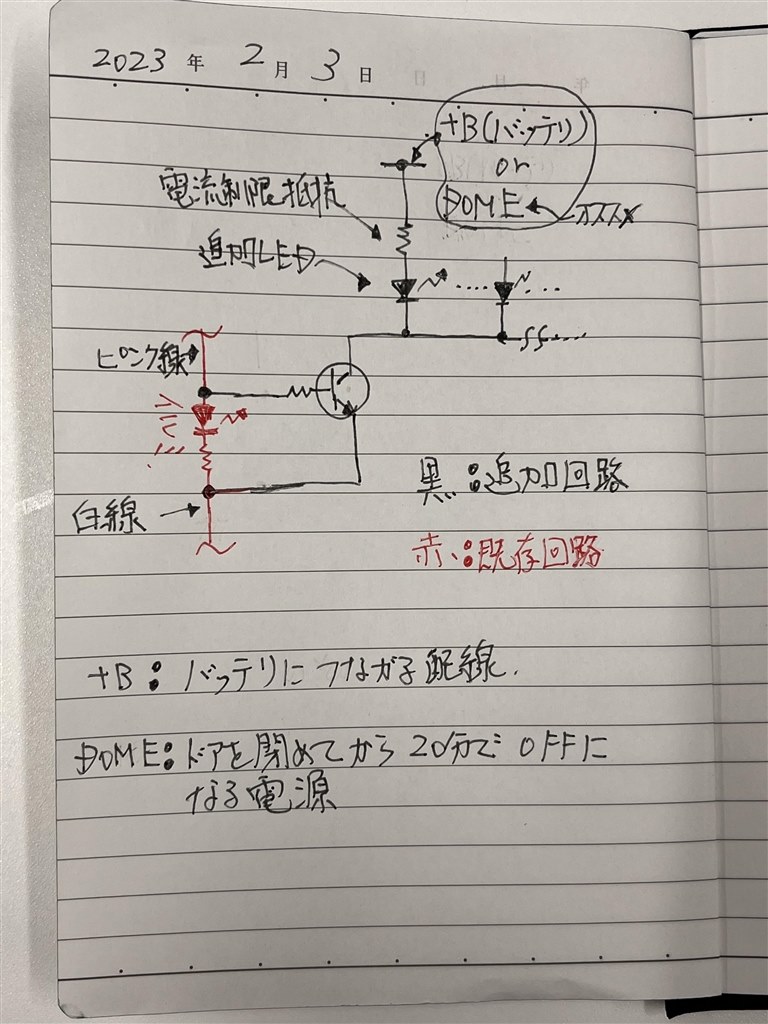 2023年 2月 3日
+B(バッテリ)
or
DOME ← オススメ
電流制限抵抗
追加LED
ピンク線
白線
黒:追加回路
赤:既存回路
+B:バッテリにつながる配線.
DOME:ドアを閉めてから20分でOFFに
なる電源